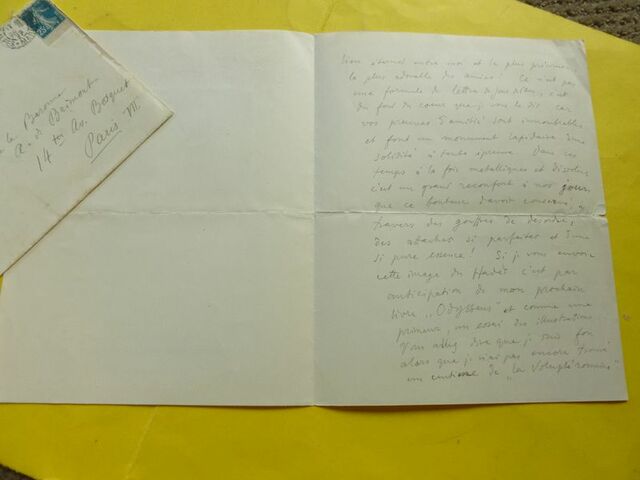 la Baronne
A. de Brimont
14 ter Av. Bosquet
Paris VII
mon et la plus précieuse
la plus adorable des amies! Ce n'est pas
une formule de lettre de jour de l'an, c'est
du fond du coeur que je vous le dis car
vos preuves d'amitié sont innombrables
et font un monument lapidaire d'une
solidité à toute épreuve. Dans ces
temps à la fois metalliques et dissolus,
c'est un grand reconfort à nos jours
que ce bonheur d'avoir conservé, à
travers des gouffres de désordre,
des attaches si parfaites et d'une
si pure essence! Si je vous envoie
cette image du Hadès c'est par
anticipation de mon prochain
livre „Odysseus" et comme une
primeur, un essai des illustrations.
Vous allez dire que je suis fou
alors que je n'ai pas encore trouvé
un centime de „la Volupté romaine"